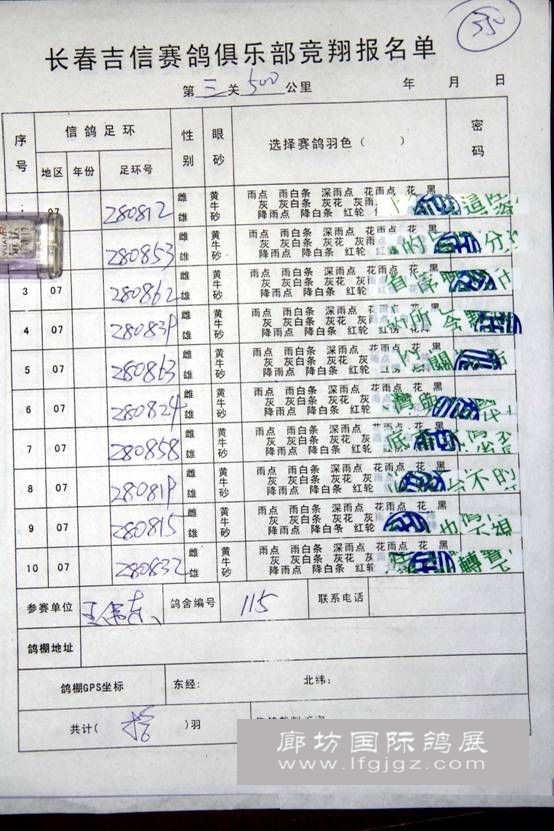 350
长春吉信赛鸽俱乐部竞翔报名单
第 三 关 500 公里 年 月 日
序号 信鸽足环 性别 眼砂 选择赛鸽羽色（ ） 密码
地区 年份 足环号
07 280812 雌 雄 黄 牛 砂 雨点 雨白条 深雨点 花雨点 花 黑
灰 灰白条 灰花 灰雨
降雨点 降白条 红轮
280853 雌 雄 黄 牛 砂 雨点 雨白条 深雨点 花雨点 花 黑
灰 灰白条 灰花 灰雨 的 分
降雨点 降白条 红轮
3 07 280862 雌 雄 黄 牛 砂 雨点 雨白条 深雨点 花雨点 花 黑
灰 灰白条 灰花 灰雨
降雨点 降白条 红轮
4 07 280839 雌 雄 黄 牛 砂 雨点 雨白条 深雨点 花雨点 花 黑
灰 灰白条 灰花 灰雨 所 令
降雨点 降白条 红轮
5 07 280863 雌 雄 黄 牛 砂 雨点 雨白条 深雨点 花雨点 花 黑
灰 灰白条 灰花 灰雨
降雨点 降白条 红轮
6 07 280824 雌 雄 黄 牛 砂 雨点 雨白条 深雨点 花雨点 花 黑
灰 灰白条 灰花 灰雨 灣
降雨点 降白条 红轮
7 07 280858 雌 雄 黄 牛 砂 雨点 雨白条 深雨点 花雨点 花 黑
灰 灰白条 灰花 灰雨 低
降雨点 降白条 红轮
8 07 280819 雌 雄 黄 牛 砂 雨点 雨白条 深雨点 花雨点 花 黑
灰 灰白条 灰花 灰雨 不的
降雨点 降白条 红轮
9 07 280815 雌 雄 黄 牛 砂 雨点 雨白条 深雨点 花雨点 花 黑
灰 灰白条 灰花 灰雨 也
降雨点 降白条 红轮
10 07 280832 雌 雄 黄 牛 砂 雨点 雨白条 深雨点 花雨点 花 黑
灰 灰白条 灰花 灰雨 轉
降雨点 降白条 红轮
参赛单位 鸽舍编号 115 联系电话
鸽棚地址
鸽棚GPS坐标 东经: 北纬:
共计( 拾 )羽
廊坊国际鸽展
www.lfgjgz.com